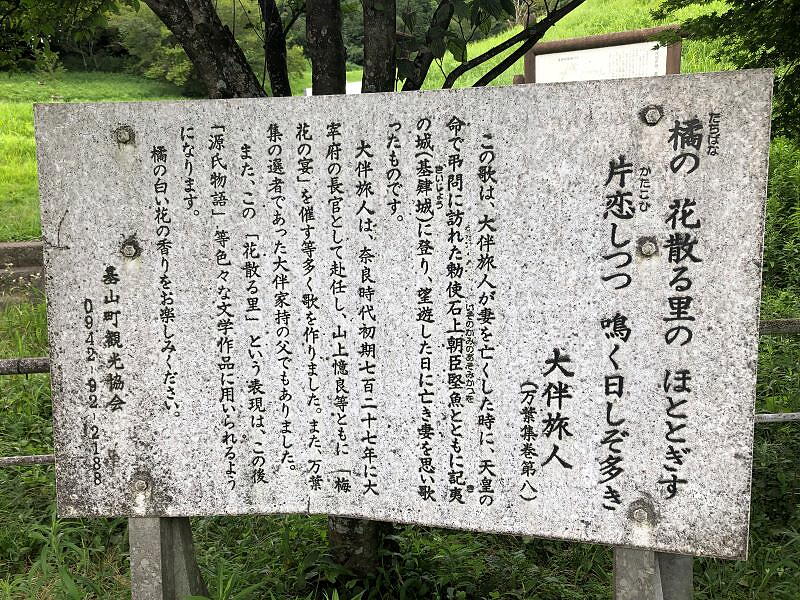 橘の 花散る里の ほととぎす
片恋しつつ 鳴く日しぞ多き
大伴旅人
(万葉集巻第八)
この歌は、大伴旅人が妻を亡くした時に、天皇の
命で弔問に訪れた勅使石上朝臣堅魚とともに記夷
の城(基肄城)に登り、望遊した日に亡き妻を思い歌
ったものです。
大伴旅人は、奈良時代初期七百二十七年に大
宰府の長官として赴任し、山上憶良等ともに「梅
花の宴」を催す等多く歌を作りました。また、万葉
集の選者であった大伴家持の父でもありました。
また、この「花散る里」という表現は、この後
「源氏物語」等色々な文学作品に用いられるよう
になります。
橘の白い花の香りをお楽しみください。
基山町観光協会
0942-92-2188